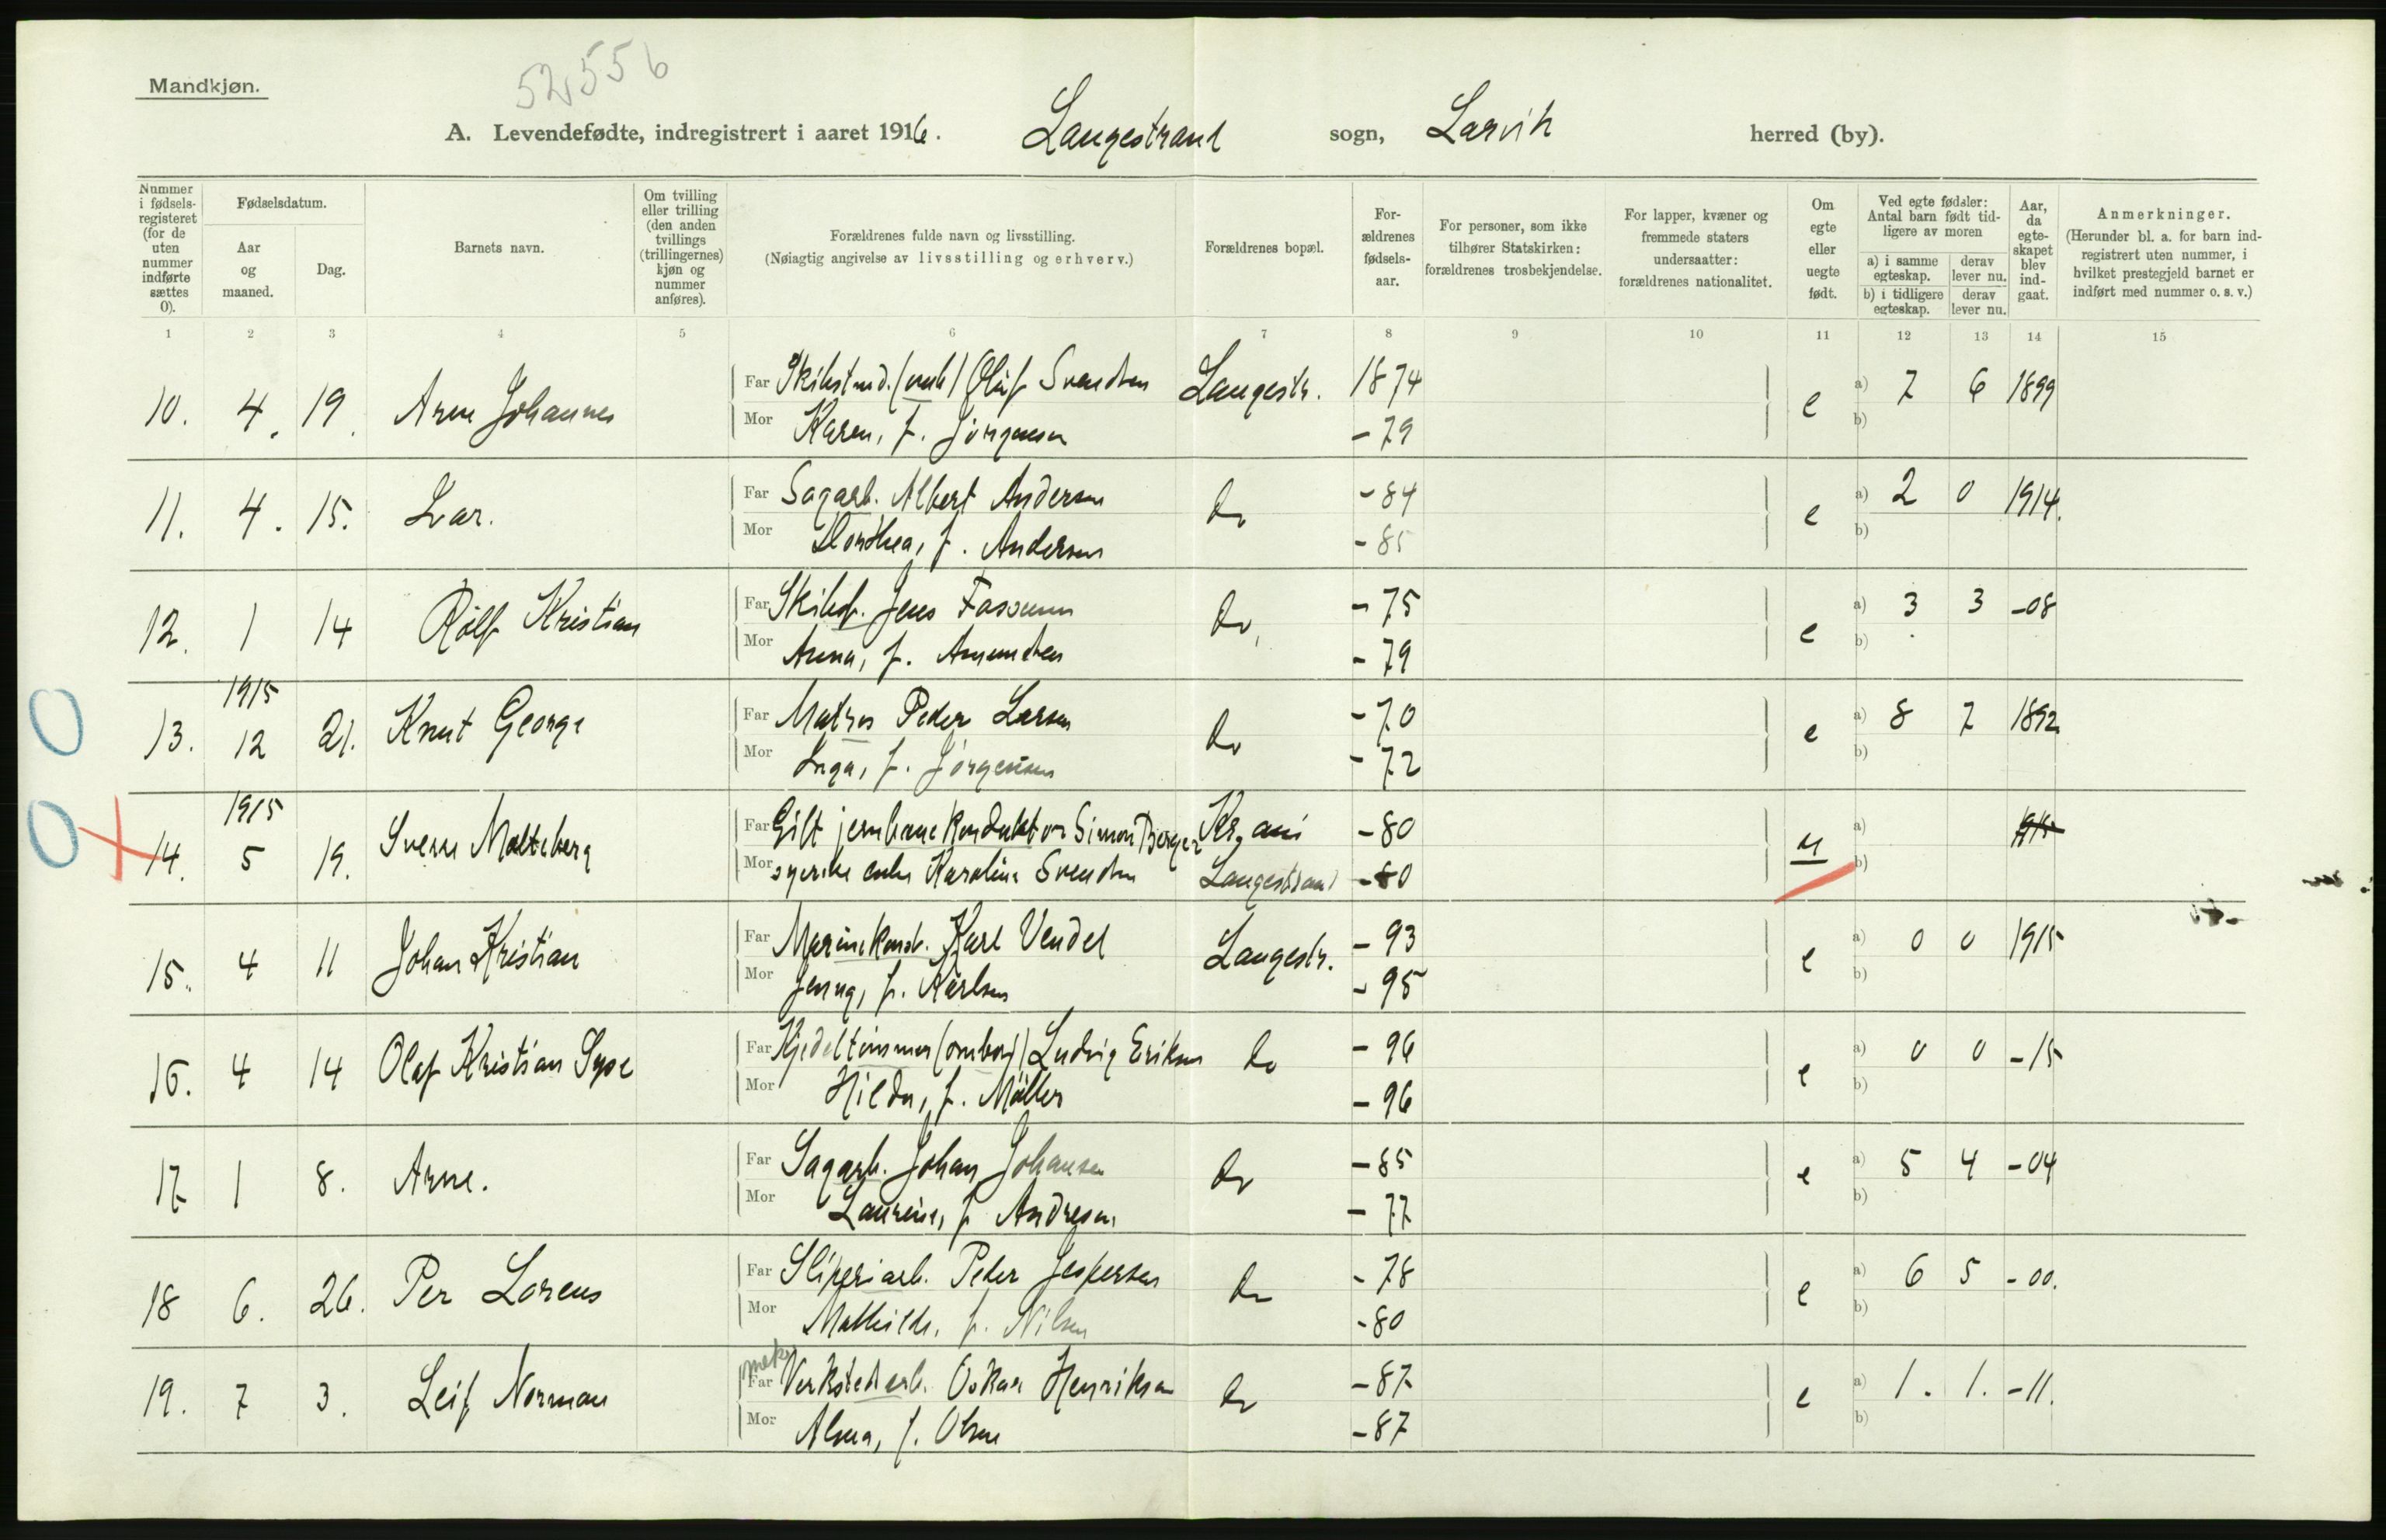 Mandkjøn.
52556
A. Levendefødte, indregistrert i aaret 1916. Langestrand sogn, Larvik herred (by).
Nummer i fødsels-registeret (for de uten nummer indførte sættes 0).
Fødselsdatum.
Aar og maaned.
Dag.
Barnets navn.
Om tvilling eller trilling (den anden tvillings (trillingernes) kjøn og nummer anføres).
Forældrenes fulde navn og livsstilling.
(Nøiagtig angivelse av livsstilling og erhverv.)
Forældrenes bopæl.
For-ældrenes fødsels-aar.
For personer, som ikke tilhører Statskirken: forældrenes trosbekjendelse.
For lapper, kvæner og fremmede staters undersaatter: forældrenes nationalitet.
Om egte eller uegte født.
Ved egte fødsler: Antal barn født tid-ligere av moren
a) i samme egteskap. derav lever nu.
b) i tidligere egteskap. derav lever nu.
Aar, da egte-skapet blev ind-gaat.
Anmerkninger.
(Herunder bl. a. for barn ind-registrert uten nummer, i hvilket prestegjeld barnet er indført med nummer o. s. v.)
1 2 3 4 5 6 7 8 9 10 11 12 13 14 15
10. 4. 19. Arne Johannes Far Olaf Svendsen Langestr. 1874 e a) 7 6 1899
Mor Karen, f. Jörgensen - 79 b)
11. 4. 15. Ivar. Far Sagarb. Albert Andersen do - 84 e a) 2 0 1914.
Mor Dorthea, f. Andersen - 85 b)
12. 1 14 Rolf Kristian Far Jens Fossum do, - 75 e a) 3 3 -08
Mor Anna, f. Amundsen - 79 b)
13. 1915 12 21. Knut George Far Matros Peder Larsen do - 70 e a) 8 7 1892
Mor Inga, f. Jörgensen - 72 b)
14. 1915 5 19. Sverre Malteberg Far Gift jernbane konduktör Simon Berger Kr.ania - 80 u a) 1915
Mor syerske enke Karoline Svendsen Langestrand - 80 b)
15. 4 11 Johan Kristian Far Karl Vendel Langestr. - 93 e a) 0 0 1915
Mor Jenny, f. Karlsen - 95 b)
16. 4 14 Olaf Kristian Far Kjedeltömmer (ombord) Ludvig Eriksen do - 96 e a) 0 0 -15
Mor Hilda, f. Möller - 96 b)
17 1 8. Arne. Far Sagarb. Johan Johansen do - 85 e a) 5 4 -04
Mor Laurine, f Andresen - 77 b)
18 6. 26. Per Lorens Far Sliperiarb. Peder Jespersen do - 78 e a) 6 5 -00.
Mor Mathilde, f. Nilsen - 80 b)
19. 7 3. Leif Norman mek. Far Verkstedarb. Oskar Henriksen do - 87 e a) 1. 1. -11.
Mor Alma, f. Olsen - 87 b)